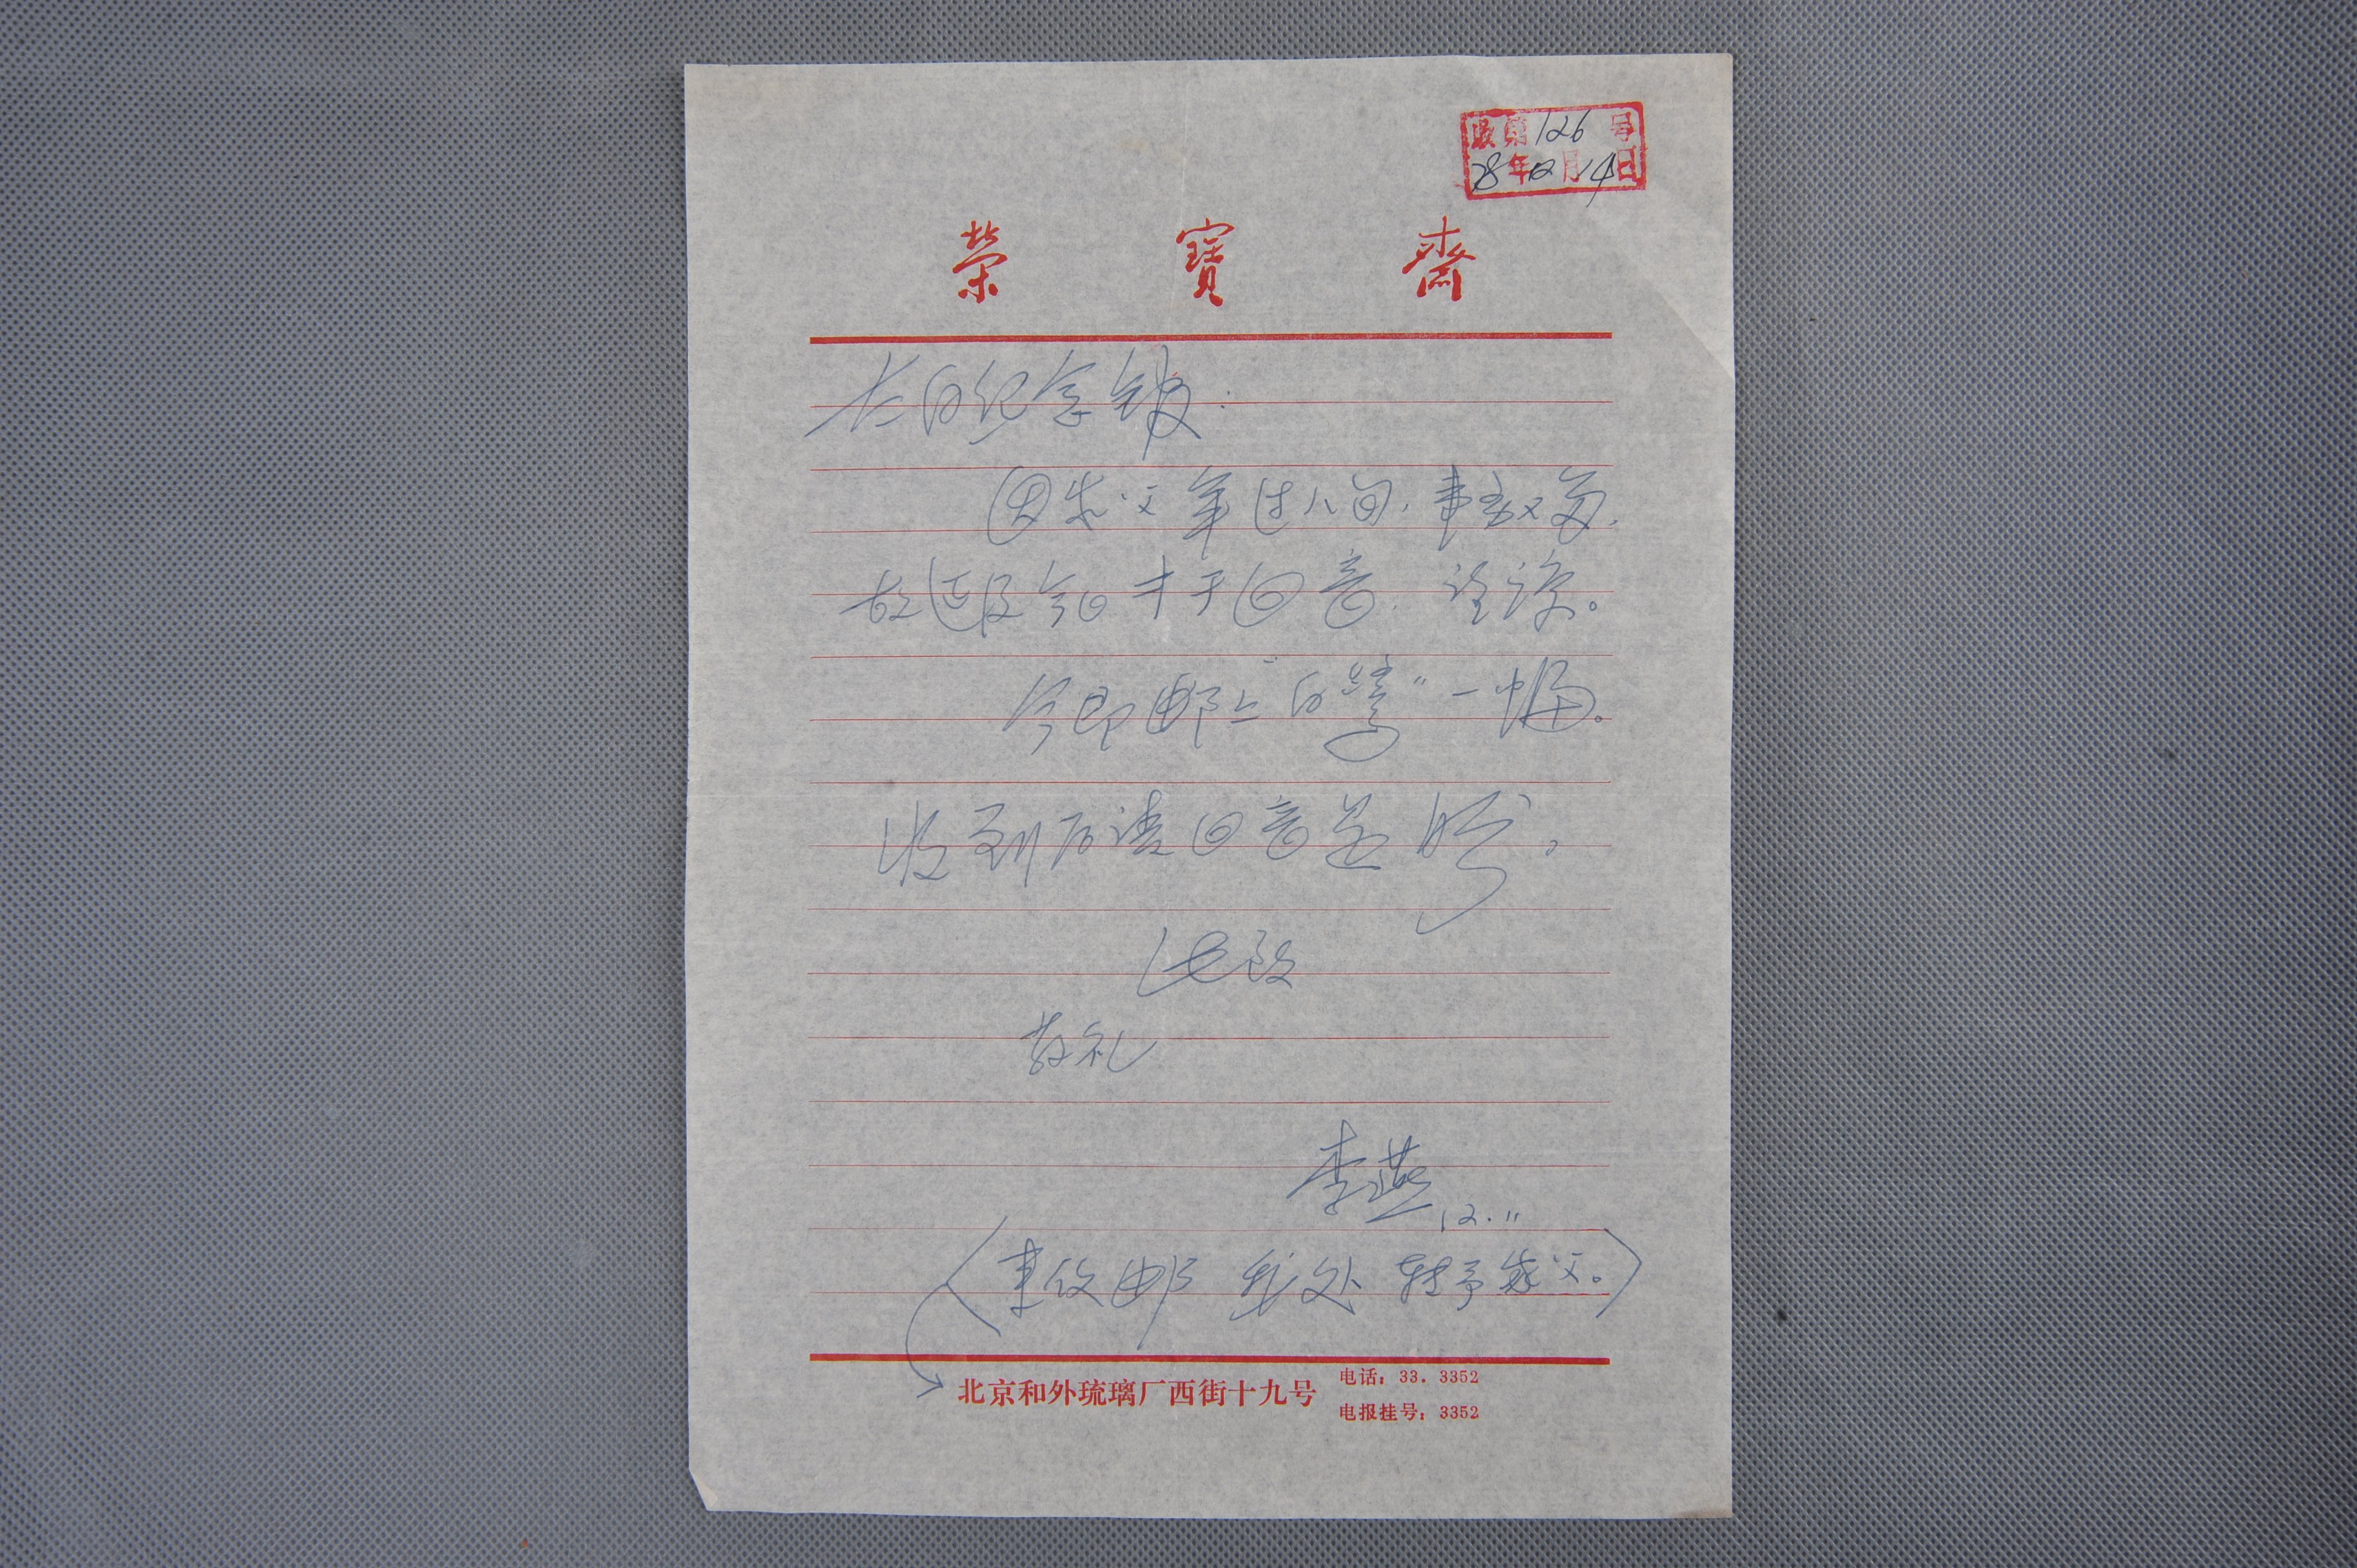 收第126号
78年12月14日
荣寳齋
太白纪念馆:
因家父年过八旬,事务又多,
故迟及今日才于回音,望谅。
今即邮上"白鹭"一幅。
收到后请回音是盼。
此致
敬礼
李燕 12.11
(来信邮我处转予家父。)
北京和外琉璃厂西街十九号
电话:33.3352
电报挂号:3352